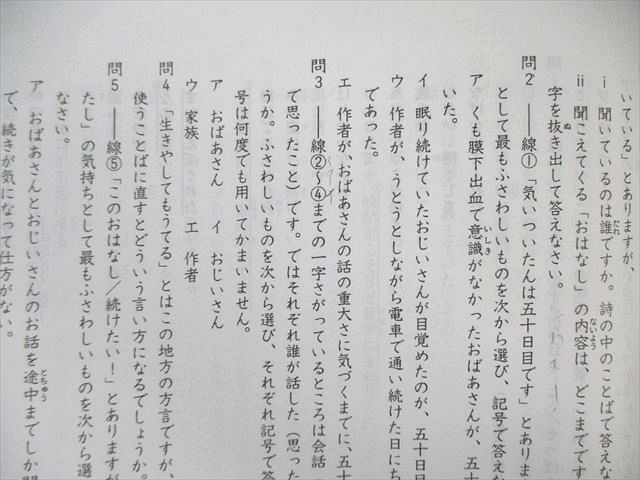 いている」とありますが、
ⅰ 聞いているのは誰ですか。詩の中のことばで答えな
ⅱ 聞こえてくる「おはなし」の内容は、どこまでです
字を抜き出して答えなさい。
問2 ――線①「気いついたんは五十日目です」とありま
として最もふさわしいものを次から選び、記号で答え
ア くも膜下出血で意識がなかったおばあさんが、五十
いた。
イ 眠り続けていたおじいさんが目覚めたのが、五十日目
ウ 作者が、うとうとしながら電車で通い続けた日にち
であった。
エ 作者が、おばあさんの話の重大さに気づくまでに、五十
問3 ――線②～④までの一字さがっているところは会話（
で思ったこと）です。ではそれぞれ誰が話した（思った
うか。ふさわしいものを次から選び、それぞれ記号で答
号は何度でも用いてかまいません。
ア おばあさん イ おじいさん
ウ 家族 エ 作者
問4 「生きやしてもうてる」とはこの地方の方言ですが、
使うことばに直すとどういう言い方になるでしょうか。
問5 ――線⑤「このおはなし／続けたい！」とありますが
たし」の気持ちとして最もふさわしいものを次から選
なさい。
ア おばあさんとおじいさんのお話を途中までしか聞
で、続きが気になって仕方がない。